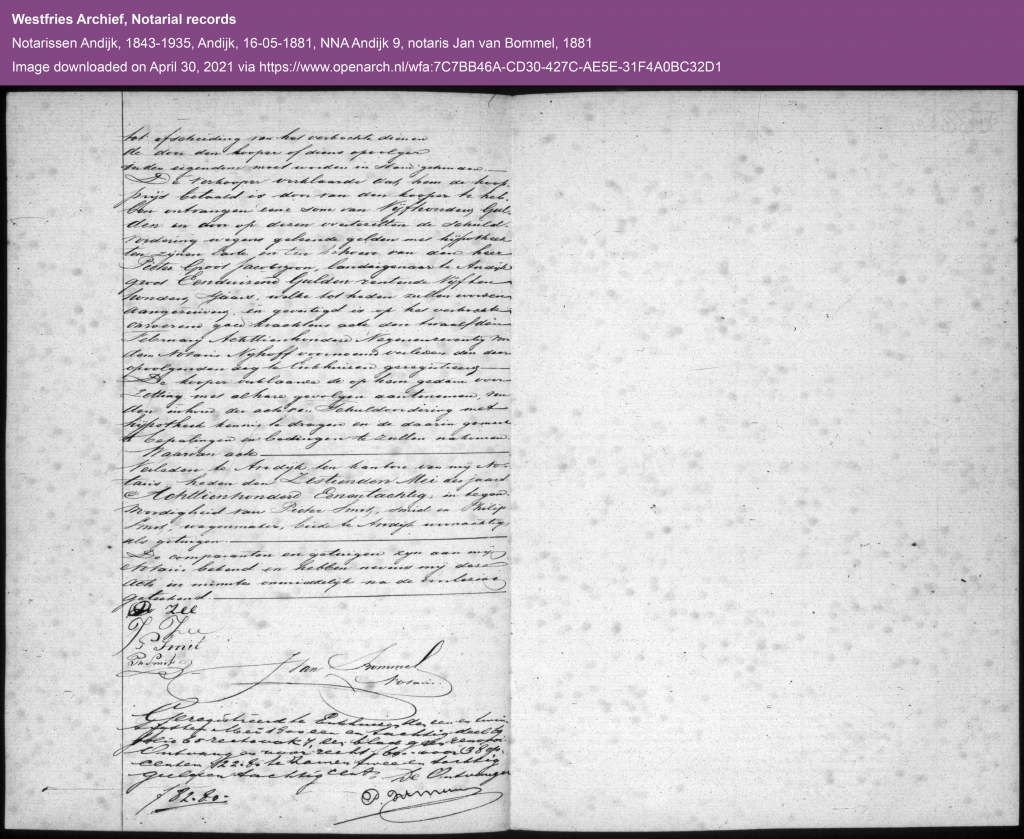 Westfries Archief, Notarial records
Notarissen Andijk, 1843-1935, Andijk, 16-05-1881, NNA Andijk 9, notaris Jan van Bommel, 1881
Image downloaded on April 30, 2021 via https://www.openarch.nl/wfa:7C7BB46A-CD30-427C-AE5E-31F4A0BC32D1
tot afscheiding van het verkochte dienen
de door den kooper of diens opvolger
in den eigendom moet worden in stand gehouden
De verkooper verklaarde dat hem de koop
prijs betaald is door van den kooper te heb-
ben ontvangen eene som van Vijfhonderd Gul
den en door op dezen overtezetten de schuld-
vordering wegens geleende gelden met hijpotheek
ten zijnen laste en ten behoeve van den heer
Pieter Groot Jacobszoon, landeigenaar te Andijk
groot Eenduizend Gulden rentende Vijf ten
honderd 's jaars, welke tot heden zullen worden
aangezuiverd, en gevestigd is op het verkochte
onroerend goed krachtens acte den twaalfden
Februarij Achttienhonderd Negenenzeventig voor
den Notaris Nijhoff voornoemd verleden den daar
opvolgenden dag te Enkhuizen geregistreerd
De kooper verklaarde de op hem gedane over
zetting met al hare gevolgen aantenemen, van
den inhoud der acte van schuldvordering met
hijpotheek kennis te dragen en de daarin gemaak
te bepalingen en bedingen te zullen nakomen
Waarvan acte
Verleden te Andijk ten kantore van mij No-
taris, heden den Zestienden Mei des jaars
Achttienhonderd Eenentachtig, in tegen
woordigheid van Pieter Smit, smid en Philip
Smit, wagenmaker, beide te Andijk woonachtig
als getuigen.
De comparanten en getuigen zijn aan mij
Notaris bekend en hebben nevens mij deze
acte in minute onmiddelijk na de voorlezing
geteekend
Zee
J Zee
P Smit
Ph Smit
J Van Bommel
Notaris
Geregistreerd te Enkhuizen den een en twin
tigsten Mei 18 een en tachtig deel
folio
Ontvangen voor recht
centen te zamen twee en tachtig
gulden tachtig cent De Ontvanger
f 82.80